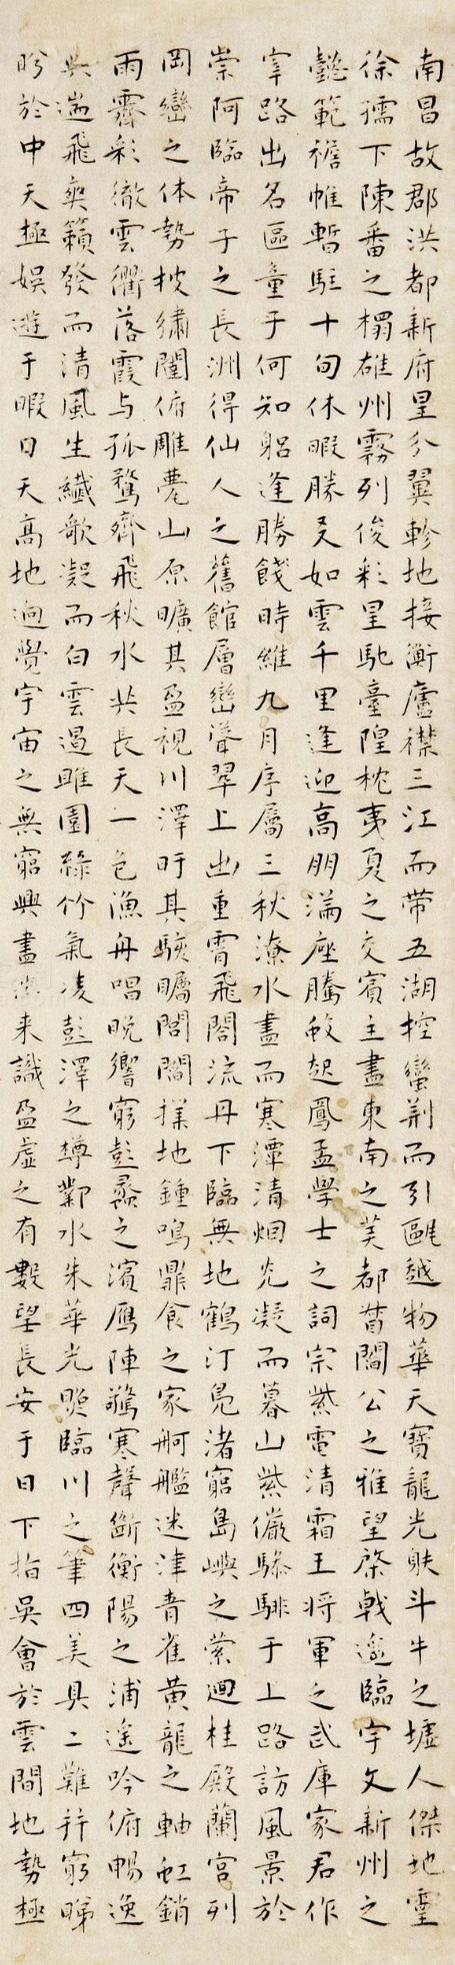 南昌故郡洪都新府星分翼軫地接衡廬襟三江而帶五湖控蠻荆而引甌越物華天寶龍光䠶斗牛之墟人傑地靈
徐孺下陳蕃之榻雄州霧列俊彩星馳臺隍枕夷夏之交賓主盡東南之美都督閻公之雅望棨戟遥臨宇文新州之
懿範襜帷暫駐十旬休暇勝友如雲千里逢迎高朋滿座騰蛟起鳳孟學士之詞宗紫電清霜王将軍之武庫家君作
宰路出名區童子何知躬逢勝餞時維九月序屬三秋潦水盡而寒潭清烟光凝而暮山紫儼驂騑于上路訪風景於
崇阿臨帝子之長洲得仙人之舊館層巒聳翠上出重霄飛閣流丹下臨無地鶴汀凫渚窮島嶼之縈迴桂殿蘭宮列
岡巒之体勢披繡闥俯雕甍山原曠其盈視川澤盱其駭矚閭閻撲地鍾鳴鼎食之家舸艦迷津青雀黄龍之軸虹銷
雨霽彩徹雲衢落霞与孤鶩齊飛秋水共長天一色漁舟唱晚響窮彭蠡之濱鴈陣驚寒聲斷衡陽之浦遥吟俯暢逸
興遄飛爽籟發而清風生纖歌凝而白雲遏睢園緑竹氣凌彭澤之樽鄴水朱華光照臨川之筆四美具二難并窮睇
眄於中天極娱遊于暇日天高地迥覺宇宙之無窮興盡悲来識盈虚之有數望長安于日下指吳會於雲間地勢極